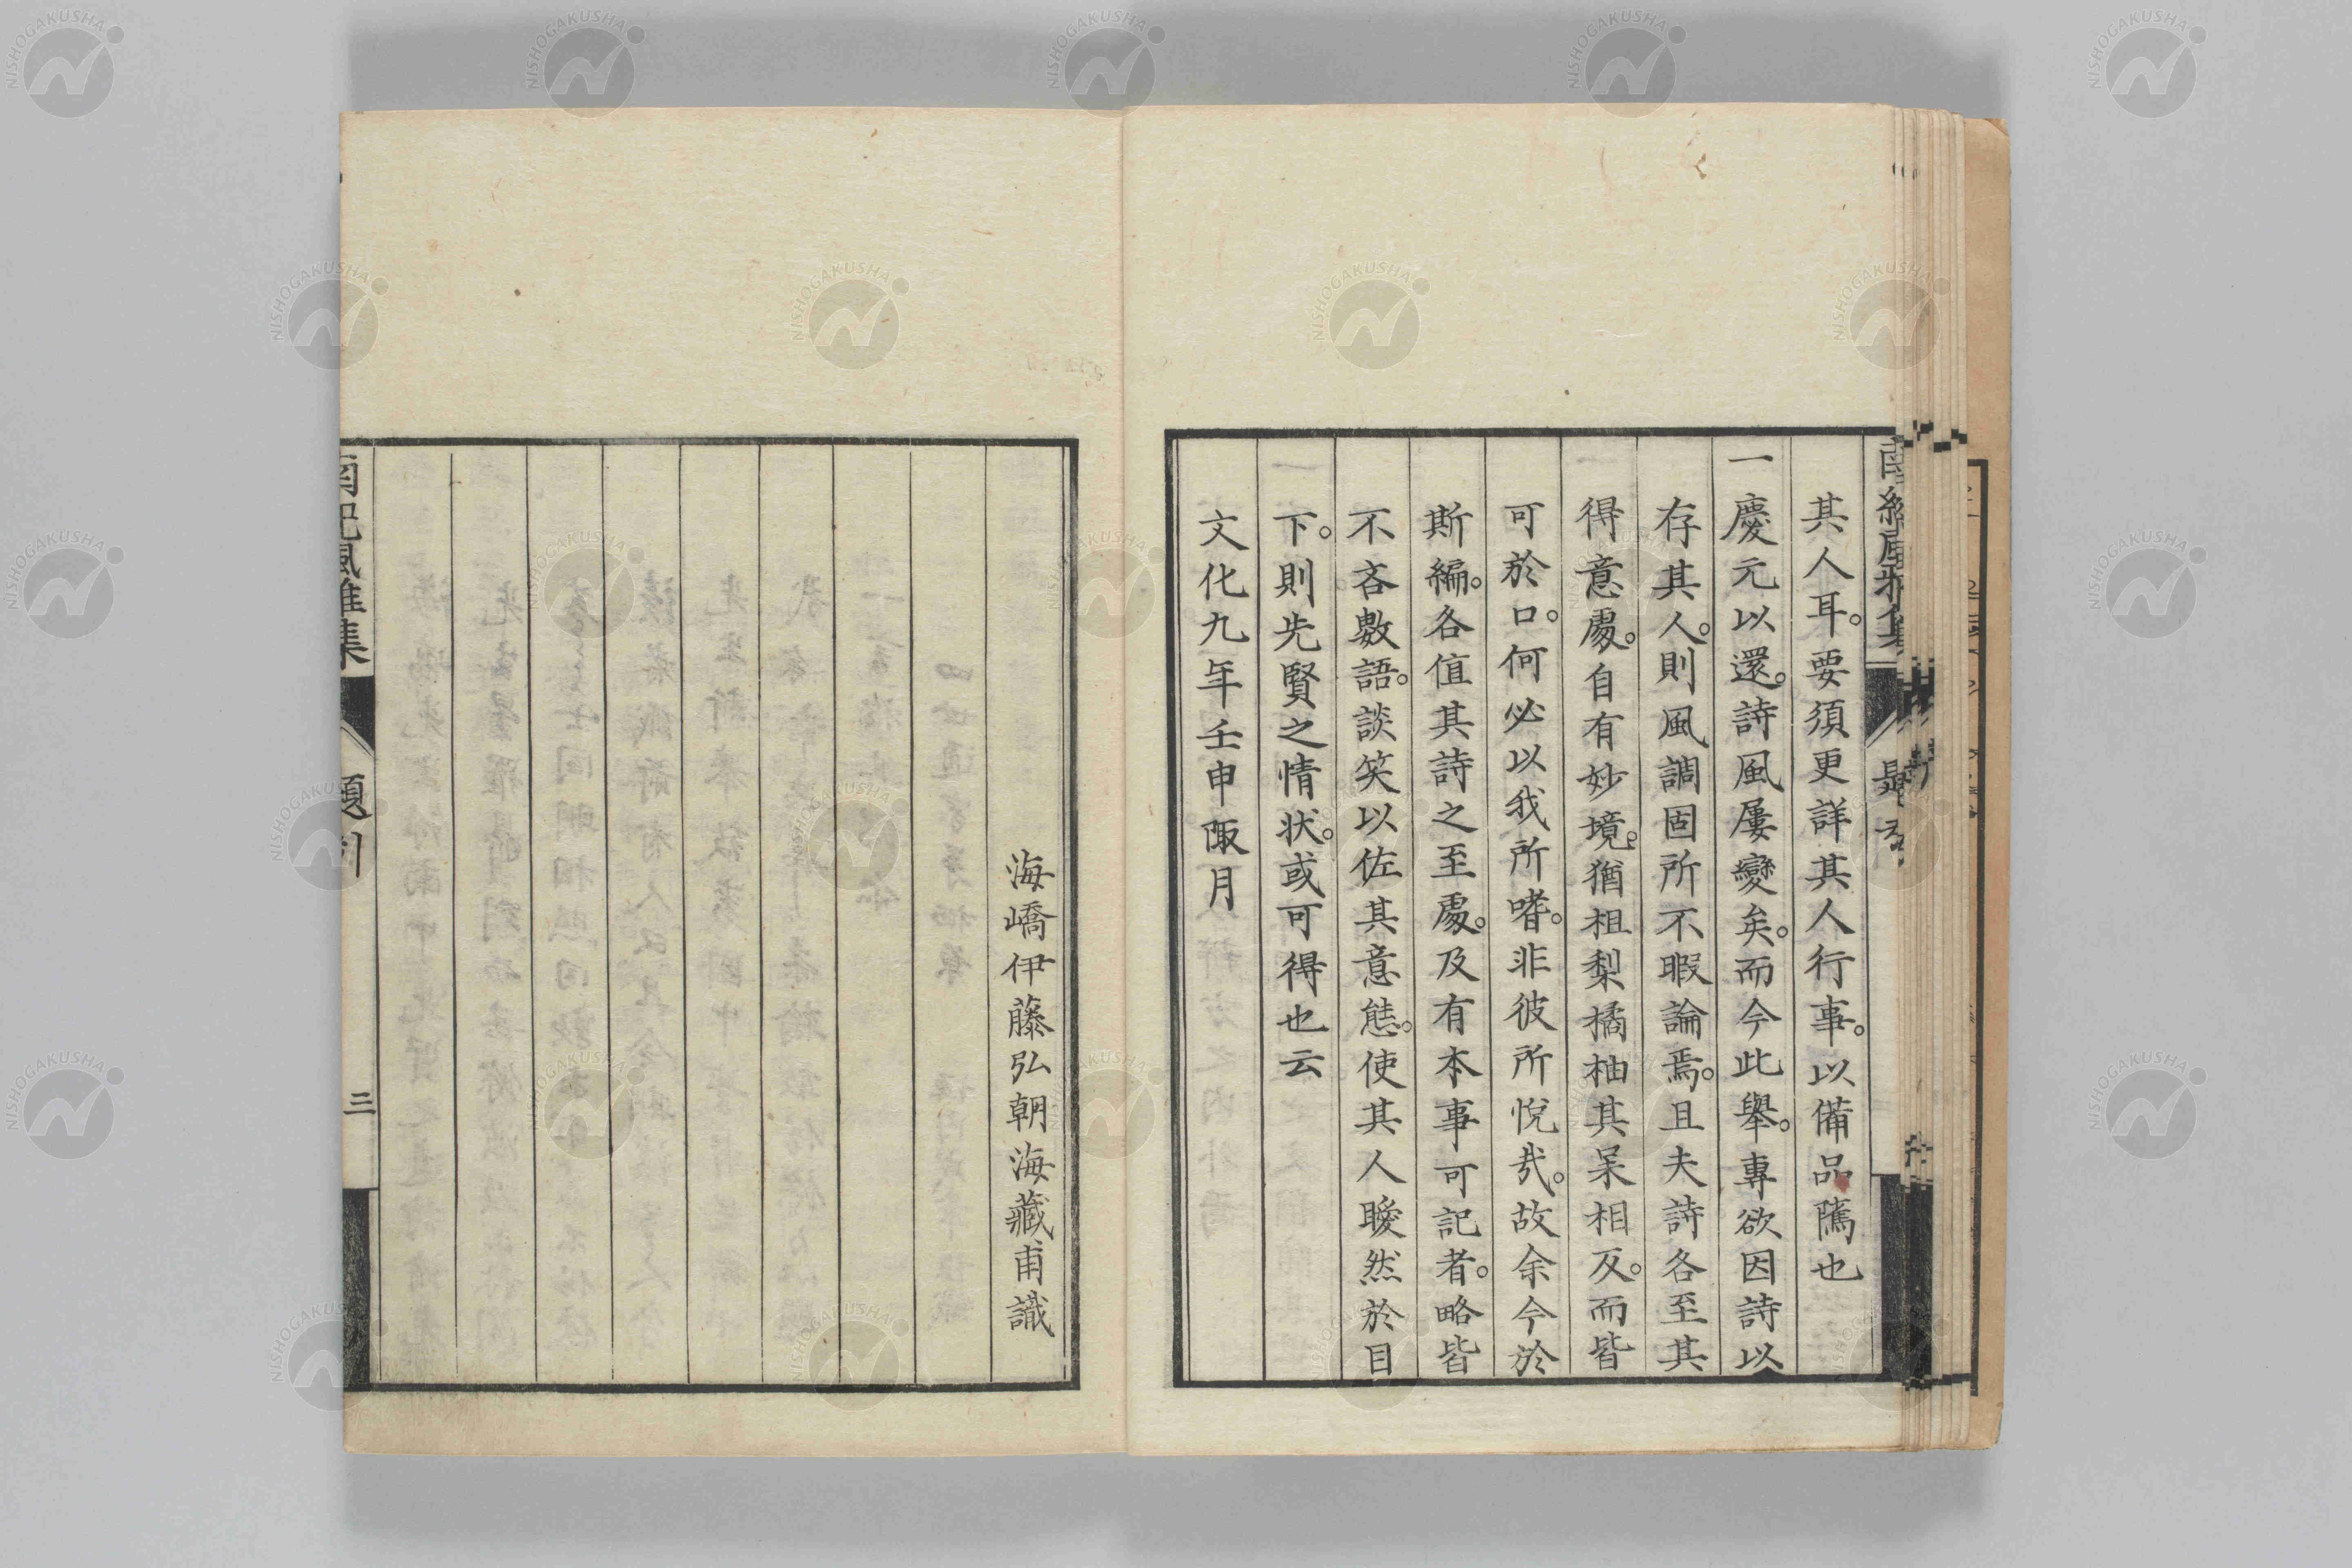 其人耳。要須更詳其人行事。以備品隲也
一慶元以還。詩風屢變矣。而今此擧。專欲因詩以
存其人。則風調固所不暇論焉。且夫詩各至其
得意處。自有妙境。猶柤梨橘柚其呆相反。而皆
可於口。何必以我所嗜。非彼所悅哉。故余今於
斯編。各值其詩之至處。及有本事可記者。略皆
不吝數語。談笑以佐其意態。使其人曖然於目
下。則先賢之情状。或可得也云
文化九年壬申陬月
海嶠伊藤弘朝海藏甫識
南紀風雅集
題例
三
NISHOGAKUSHA